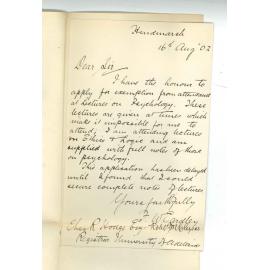 Hindmarsh
16th Aug '02
Dear Sir
I have the honour to
apply for exemption from attendance
at lectures on Psychology. These
lectures are given at times which
make it impossible for me to
attend. I am attending lectures
on Ethics & Logic and am
supplied with full notes of those
on psychology.
This application has been delayed
until I found that I could
secure complete notes of lectures
Yours faithfully
Chas R Hodge Esq
Registrar University of Adelaide